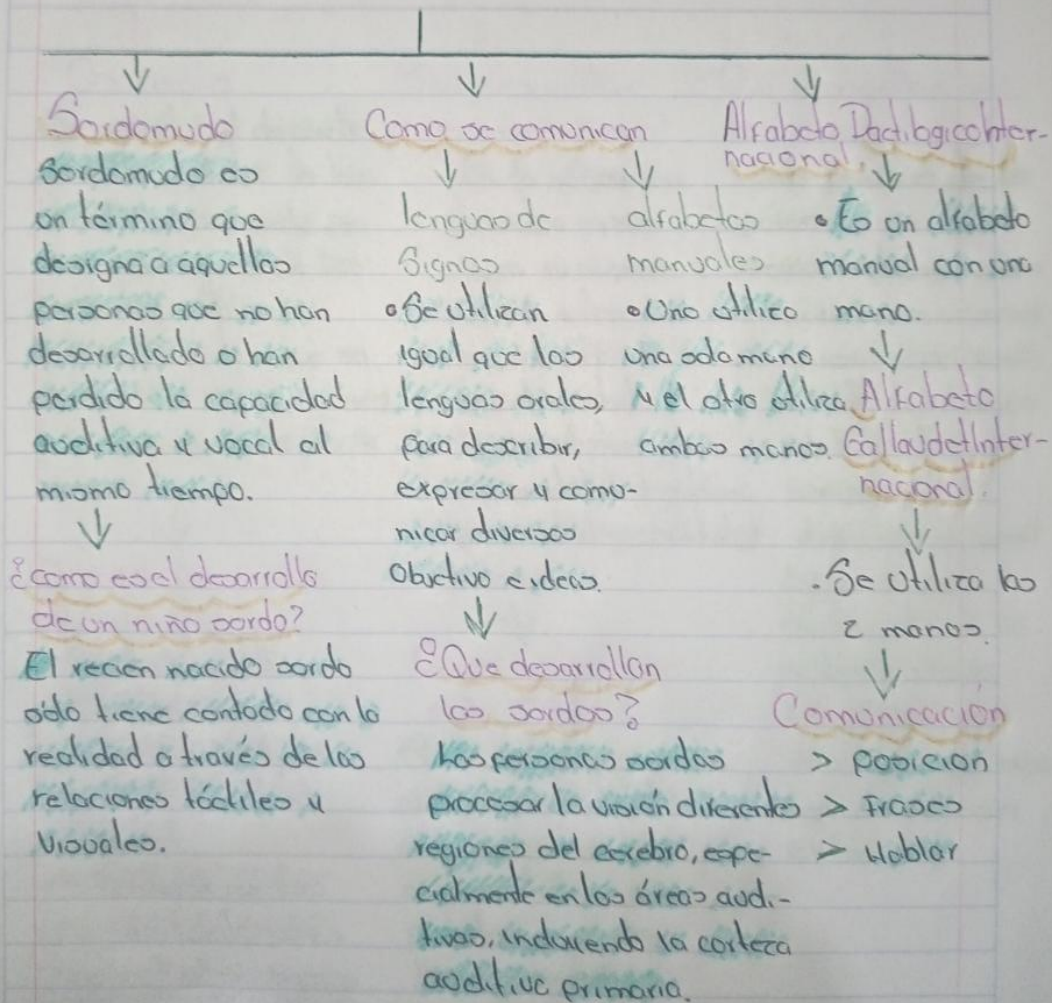 Sordomudo
Sordomudo es
un término que
designa a aquellas
personas que no han
desarrollado o han
perdido la capacidad
auditiva y vocal al
mismo tiempo.
¿Como es el desarrollo
de un niño sordo?
El recien nacido sordo
sólo tiene contacto con la
realidad a través de las
relaciones táctiles y
visuales.
Como se comunican
lenguas de
Signos
• Se utilizan
igual que las
lenguas orales,
para describir,
expresar y comu-
nicar diversos
Objetivo e ideas.
alfabetos
manuales
• Uno utiliza
una sola mano
y el otro utiliza
ambas manos.
¿Que desarrollan
los sordos?
Las personas sordas
procesar la visión diferentes
regiones del cerebro, espe-
cialmente en las áreas audi-
tivas, incluyendo la corteza
auditiva primaria.
Alfabeto Dactilogico Inter-
nacional.
• Es un alfabeto
manual con una
mano.
Alfabeto
Gallaudet Inter-
nacional.
. Se utiliza las
2 manos.
Comunicación
> posición
> Frases
> Hablar